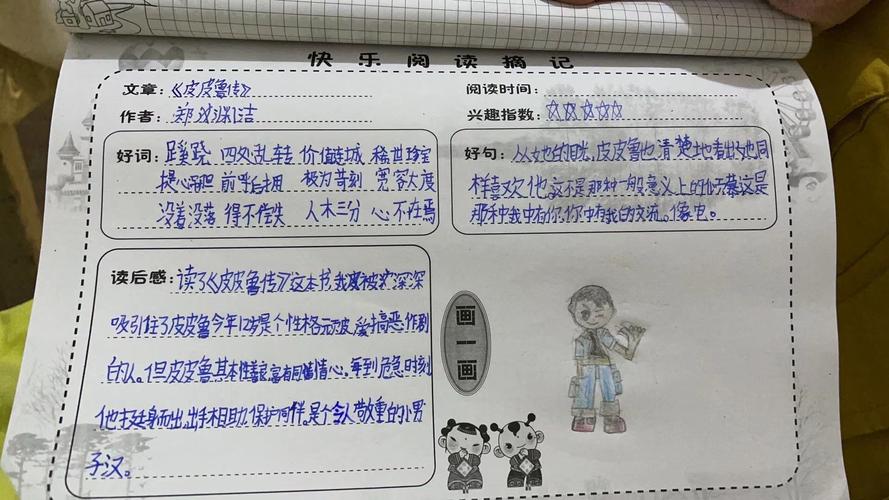 快乐阅读摘记
文章：《皮皮鲁传》
阅读时间：
作者：郑渊洁
兴趣指数：☆☆☆☆☆
好词：蹊跷 四处乱转 价值连城 稀世珍宝
提心吊胆 前呼后拥 极为苛刻 宽容大度
没着没落 得不偿失 入木三分 心不在焉
好句：从她的目光，皮皮鲁也清楚地看出她也同
样喜欢他这不是那种一般意义上的 这是
那种我中有你，你中有我的交流。像电。
读后感：读了《皮皮鲁传》这本书，我 被 深深
吸引住了皮皮鲁今年12岁是个性格 皮，爱搞恶作剧
的人。但皮皮鲁其本性善良富有同情心，每到危急时刻
他 挺身而出，出手相助，保护同伴。是个令人敬重的小男
子汉。
画一画